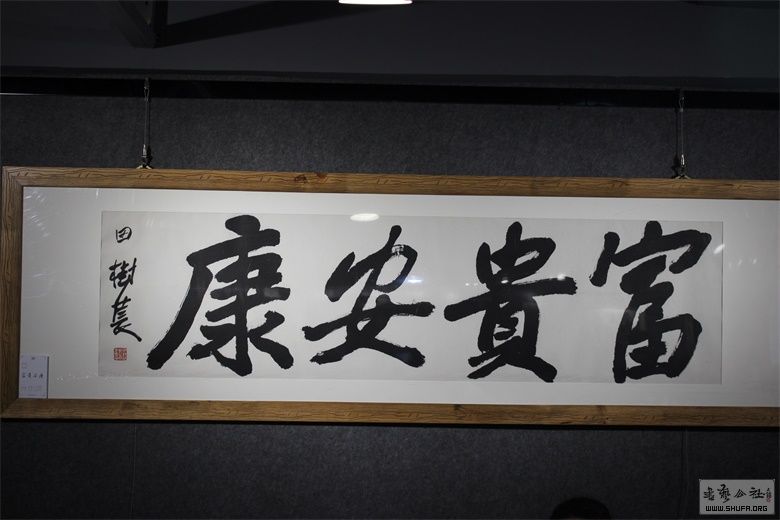 富貴安康
田樹萇
書藝公社
WWW.SHUFA.ORG